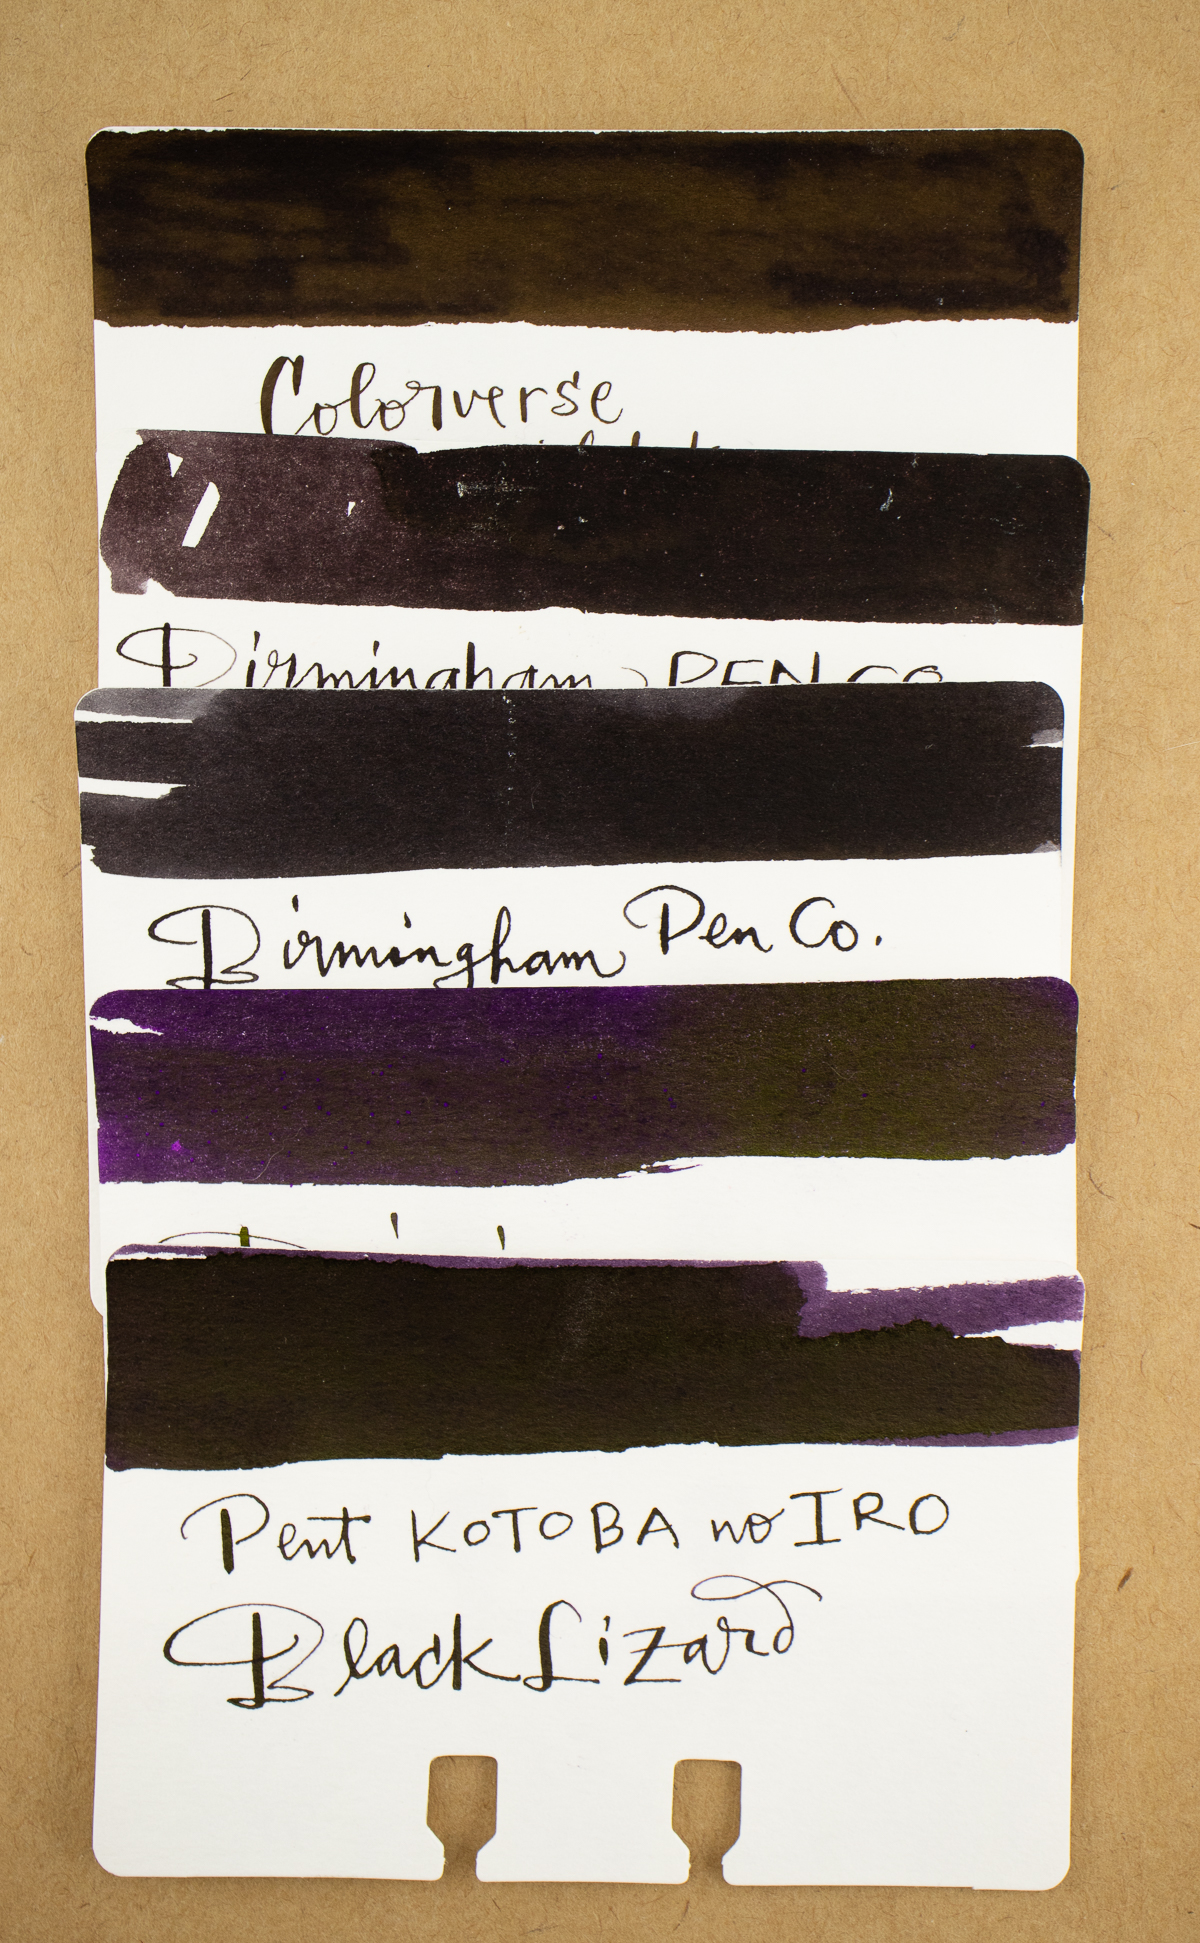 Colorverse
Birmingham PEN CO
Birmingham Pen Co.
Pent KOTOBA no IRO
Black Lizard